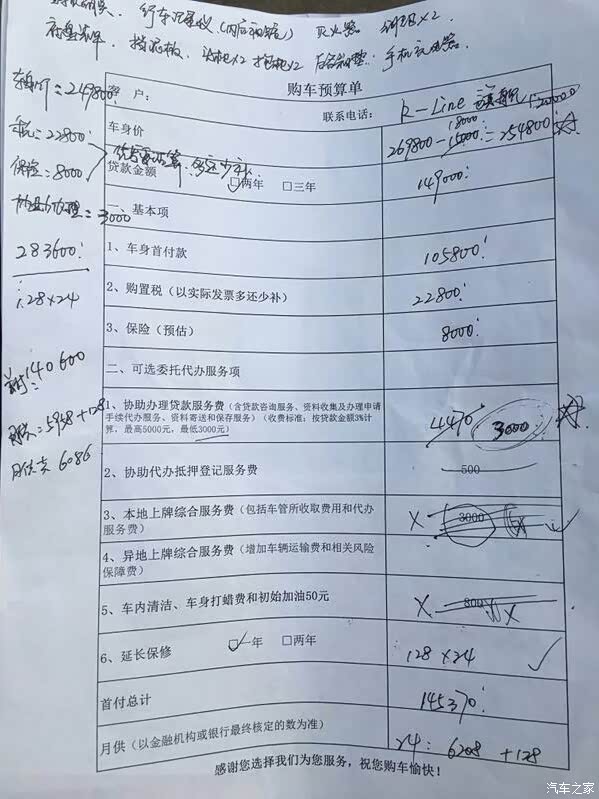 行车记录仪 灭火器 ×2
底盘 挡泥板 ×2 ×2 手机
购车预算单
客 户:
联系电话: R-Line
车身价 269800-15000=254800 18000
贷款金额 两年 三年 149000
一、基本项
1、车身首付款 105800
2、购置税(以实际发票多还少补) 22800
3、保险(预估) 8000
二、可选委托代办服务项
1、协助办理贷款服务费(含贷款咨询服务、资料收集及办理申请手续代办服务、资料寄送和保存服务)(收费标准:按贷款金额3%计算,最高5000元,最低3000元) 4470 3000
2、协助代办抵押登记服务费 500
3、本地上牌综合服务费(包括车管所收取费用和代办服务费) × 3000
4、异地上牌综合服务费(增加车辆运输费和相关风险保障费)
5、车内清洁、车身打蜡费和初始加油50元 × 800 ×
6、延长保修 一年 两年 128×24
首付总计 145370
月供(以金融机构或银行最终核定的数为准) 24: 6208 +128
感谢您选择我们为您服务,祝您购车愉快!
=249800
=22800
保险=8000 多还少补
=3000
283600
128×24
140600
=5958+128
月供 6086
汽车之家